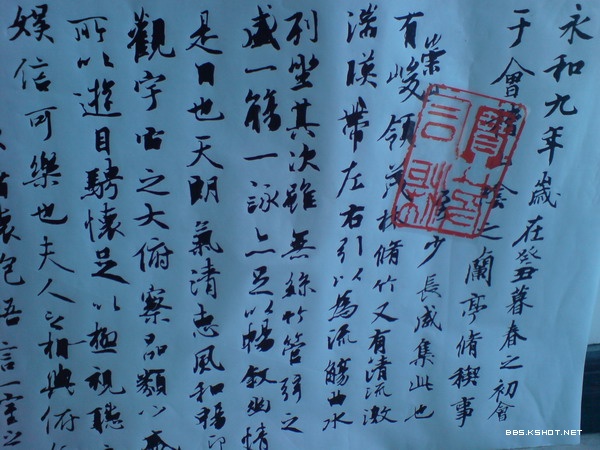 永和九年歲在癸丑暮春之初會
于會山陰之蘭亭脩禊事
少長咸集此也
崇
有峻領茂林脩竹又有清流激
湍暎帶左右引以為流觴曲水
列坐其次雖無絲竹管弦之
盛一觴一詠亦足以暢敘幽情
是日也天朗氣清惠風和暢仰
觀宇宙之大俯察品類之
所以遊目騁懷足以極視聽之
娛信可樂也夫人之相與俯
懷言一室
BBS.KSHOT.NET